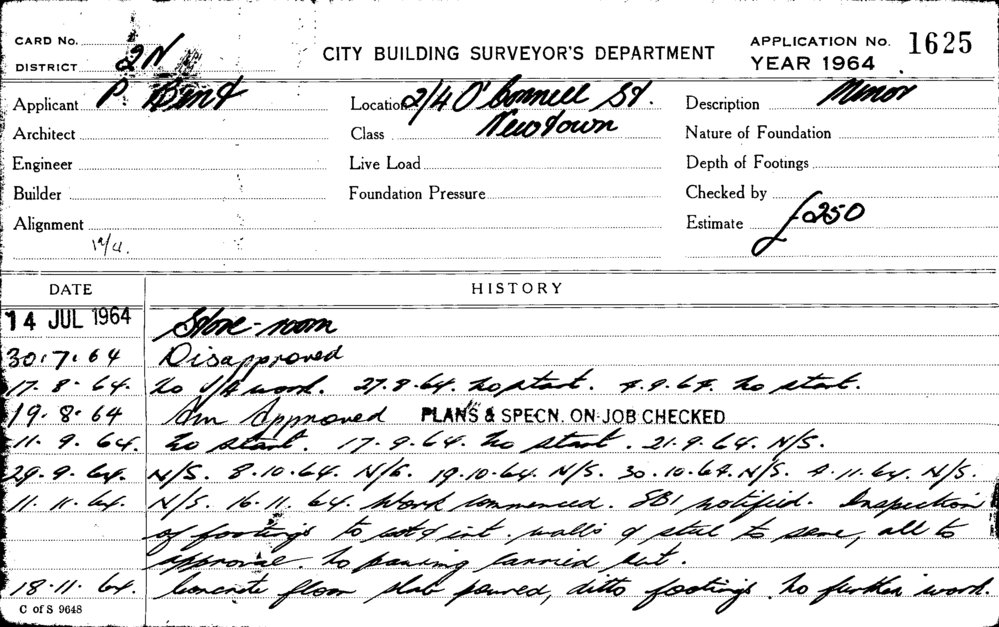 CARD No.
DISTRICT 2N
CITY BUILDING SURVEYOR'S DEPARTMENT
APPLICATION No. 1625
YEAR 1964
Applicant P.
Location 2/4 O'Connell St.
Newtown
Description Minor
Architect
Class
Nature of Foundation
Engineer
Live Load
Depth of Footings
Builder
Foundation Pressure
Checked by
Alignment
Estimate £250
DATE HISTORY
14 JUL 1964 Store-room
30.7.64 Disapproved
17.8.64. No work. 27.8.64. No start. 4.9.64. No start.
19.8.64 Approved PLANS & SPECN. ON JOB CHECKED
11.9.64. No start. 17.9.64. No start. 21.9.64. N/S.
29.9.64. N/S. 8.10.64. N/S. 19.10.64. N/S. 30.10.64. N/S. 4.11.64. N/S.
11.11.64. N/S. 16.11.64. Work commenced. SBI notified. Inspection
of footings to ext & int. walls & steel to same, all to
approval. No pouring carried out.
18.11.64. Concrete floor slab poured, ditto footings. No further work.
C of S 9648